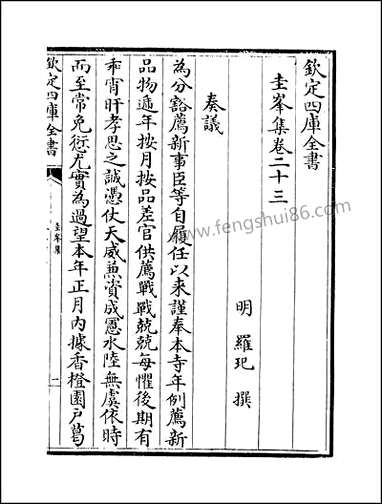 欽定四庫全書
圭峯集卷二十三
明 羅玘 撰
奏議
為分豁薦新事臣等自履任以来謹奉本寺年例薦新
品物逓年按月按品差官供薦戰戰兢兢每懼後期有
乖宵旰孝思之誠憑仗天威兼資成憲水陸無虞依時
而至常免愆尤實為過望本年正月內據香橙園戶葛
欽定四庫全書
圭峯集
www.fengshui86.com